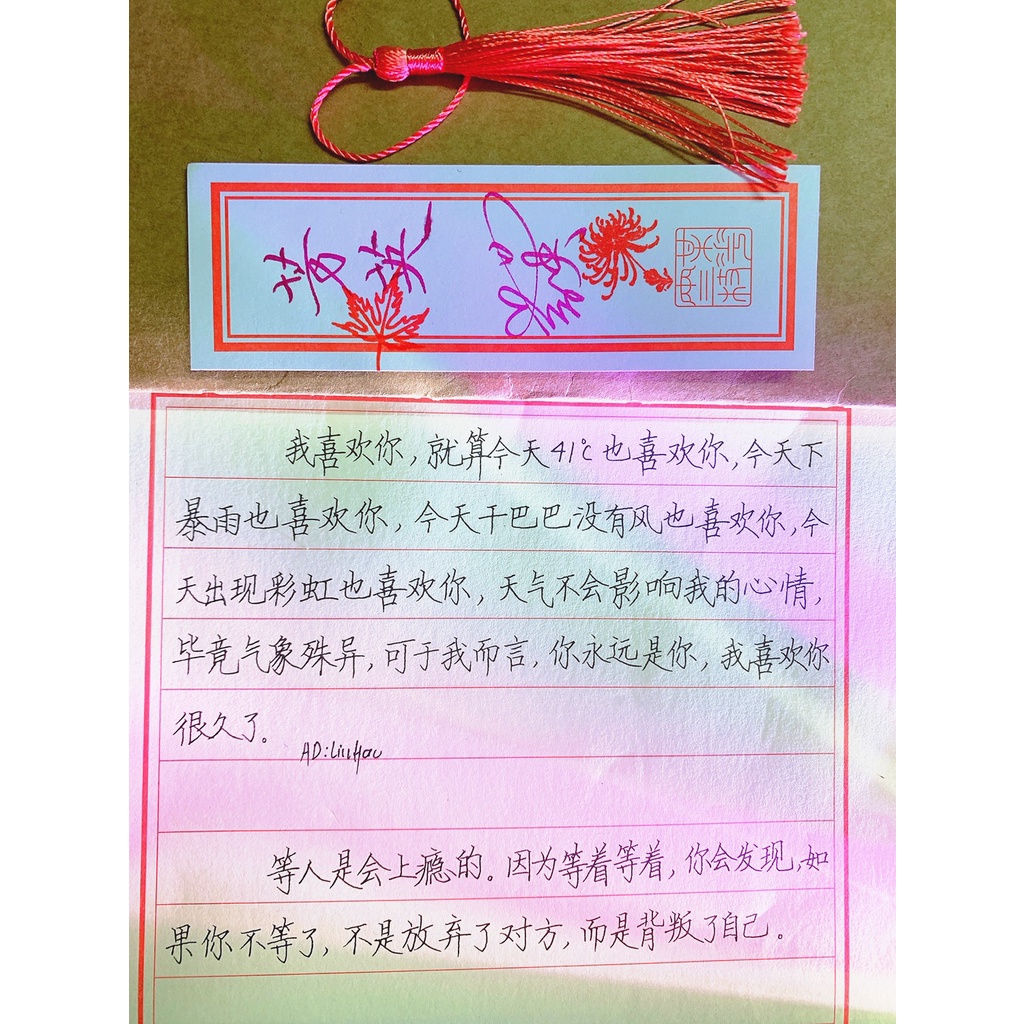 我喜欢你，就算今天41℃也喜欢你，今天下
暴雨也喜欢你，今天干巴巴没有风也喜欢你，今
天出现彩虹也喜欢你，天气不会影响我的心情，
毕竟气象殊异，可于我而言，你永远是你，我喜欢你
很久了。
AD:LiuHao
等人是会上瘾的。因为等着等着，你会发现，如
果你不等了，不是放弃了对方，而是背叛了自己。